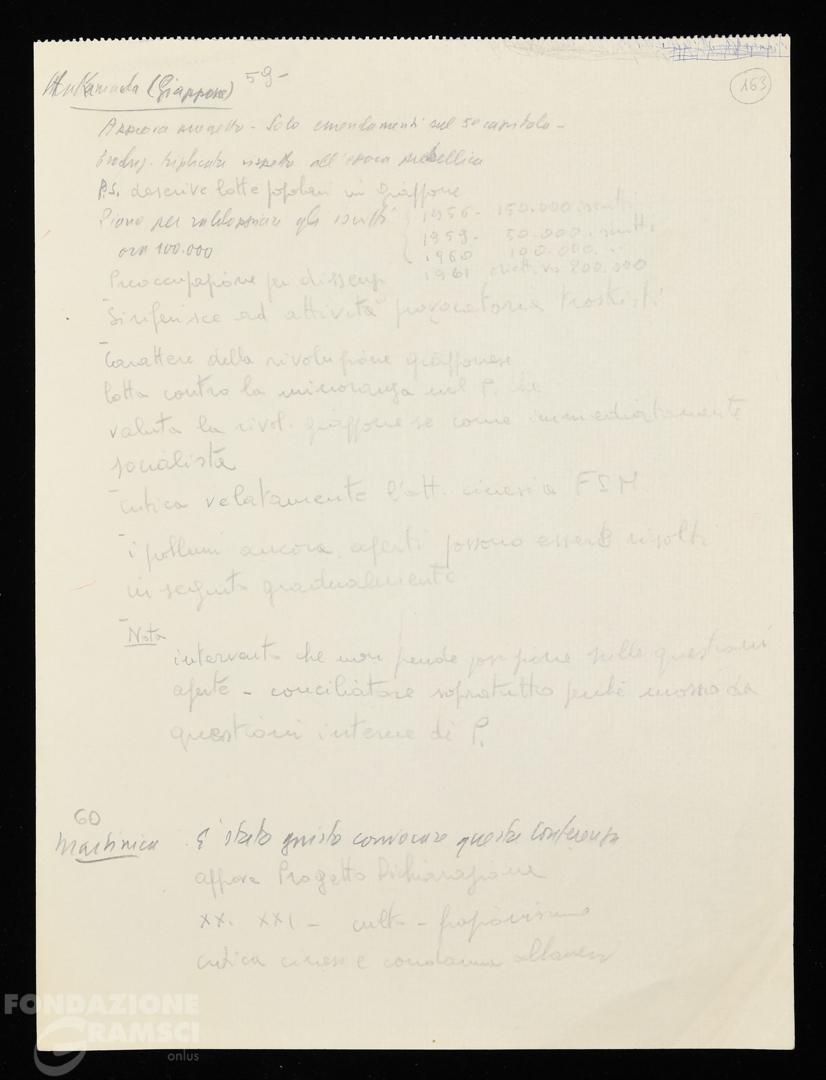 (Giappone) 59-
163
Approva progetto - Solo emendamenti sul 5º capitolo -
triplicata rispetto all'epoca prebellica
P.S. descrive lotte popolari in Giappone
Piano per gli iscritti 1956 - 150.000 iscritti
ora 100.000 1959 - 50.000 iscritti
1960 100.000 "
Preoccupazione per 1961 200.000
- Si riferisce ad attività provocatoria trotskisti
- Carattere della rivoluzione giapponese
lotta contro la minoranza nel P. che
valuta la rivol. giapponese come immediatamente
socialista
- Critica velatamente l'att. cinesi a FSM
- i problemi ancora aperti possono essere risolti
in seguito gradualmente
- Nota
intervento che non prende posizione sulle questioni
aperte - conciliatore sopratutto perché mosso da
questioni interne di P.
60
Martinica E' stato giusto convocare questa Conferenza
approva Progetto Dichiarazione
XX. XXI - culto - frazionismo
critica cinesi e condanna albanesi
FONDAZIONE
GRAMSCI
onlus